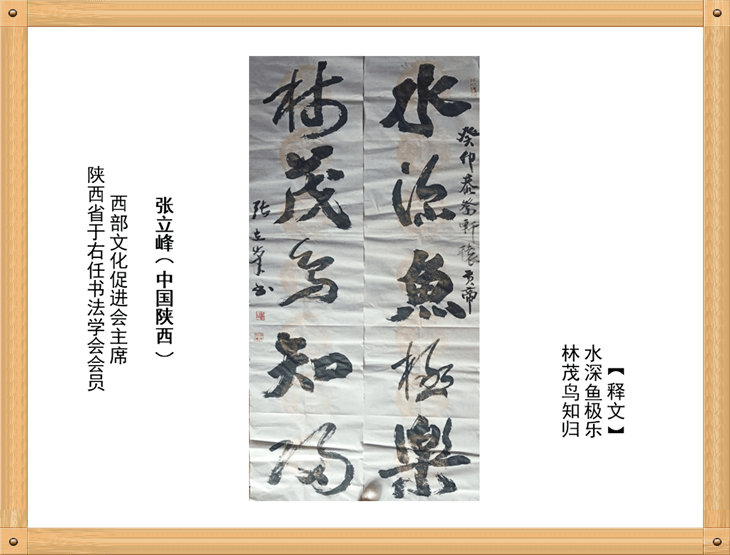 水深魚極樂
癸卯恭祭軒轅黄帝
林茂鳥知歸
张立峰书
张立峰（中国陕西）
西部文化促进会主席
陕西省于右任书法学会会员
【释文】
水深鱼极乐
林茂鸟知归